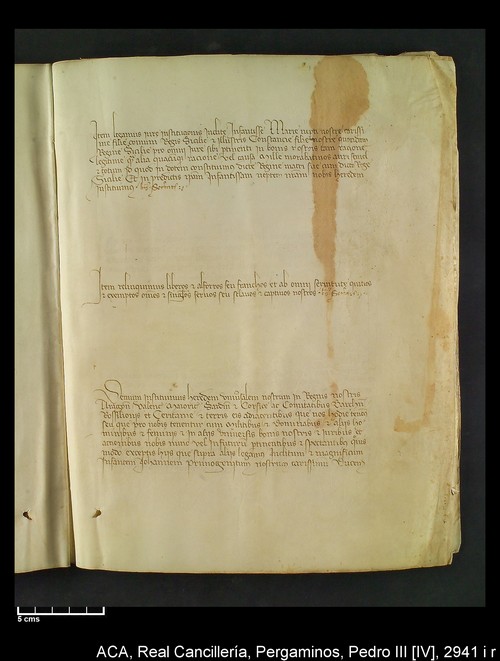 Item legamus jure institucionis Inclite Infantisse Marie nepti nostre carissi
me filie comuni Regis Sicilie & illustris Constancie filie nostre quondam
Regine Sicilie pro omni jure sibi pertinenti in bonis nostris tam racione
legitime qm alia quacumque racione vel causa mille morabatinos auri semel
& totum id quod in dotem constituimus dicte Regine matri sue cum dicto Rege
Sicilie Et in predictis ipam Infantissam neptem nostram nobis heredem
instituimus
Item relinquimus liberos & alforros seu franchos et ab omni servitute quitios
& exemptos omnes & singulos servos seu sclavos & captivos nostros
Demum instituimus heredem universalem nostrum in Regnis nostris
Aragon Valencie Maiorice Sardinie & Corsice ac Comitatibus Barchn
Rossilionis et Ceritanie & terris eis adiacentibus que nos hodie tenemus
seu que pro nobis tenentur cum Militibus & Dominabus & aliis ho
minibus & feminis & in aliis universis bonis nostris & juribus &
accionibus nobis nunc vel Infuturum pertinentibus & spectantibus quovis
modo exceptis hiis que supra aliis legamus Inclitum & magnificum
Infantem Johannem Primogenitum nostrum carissimum Ducem
5 cms
ACA, Real Cancillería, Pergaminos, Pedro III [IV], 2941 i r